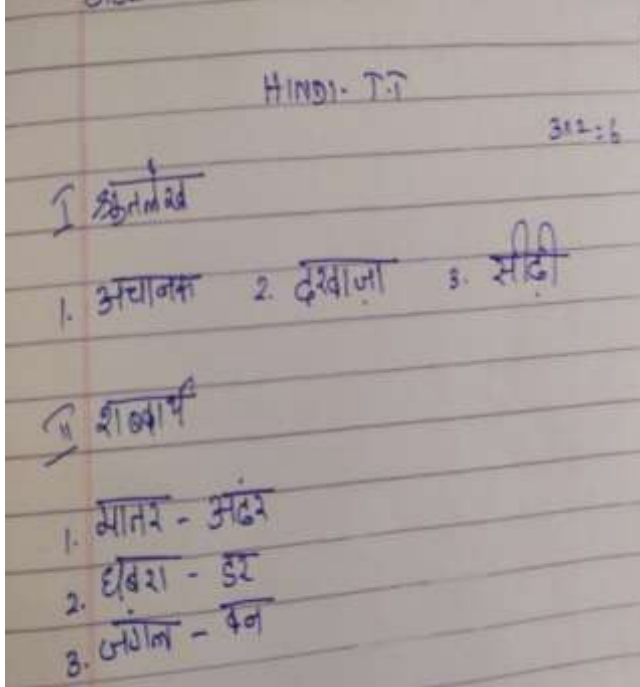 HINDI- T.T
3×2=6
I श्रुतलेख
1. अचानक 2. दरवाज़ा 3. सीढ़ी
II शब्दार्थ
1. भीतर - अंदर
2. घबरा - डर
3. जंगल - वन